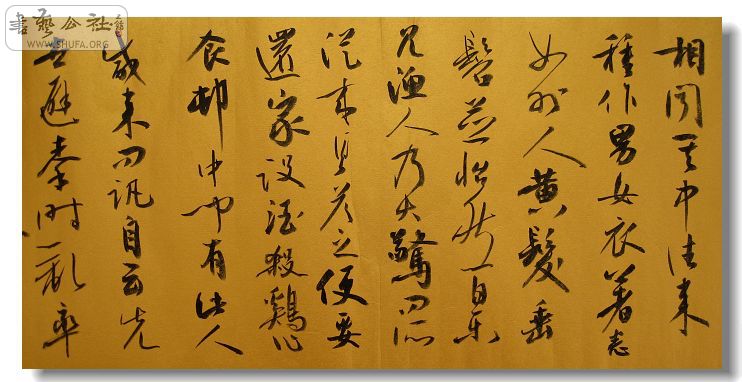 相聞其中往来
種作男女衣著悉
如外人黄髮垂
髫並怡然自樂
見漁人乃大驚問所
從来具答之便要
還家設酒殺鷄作
食邨中聞有此人
咸来問訊自云先
世避秦時亂率
書藝公社
WWW.SHUFA.ORG